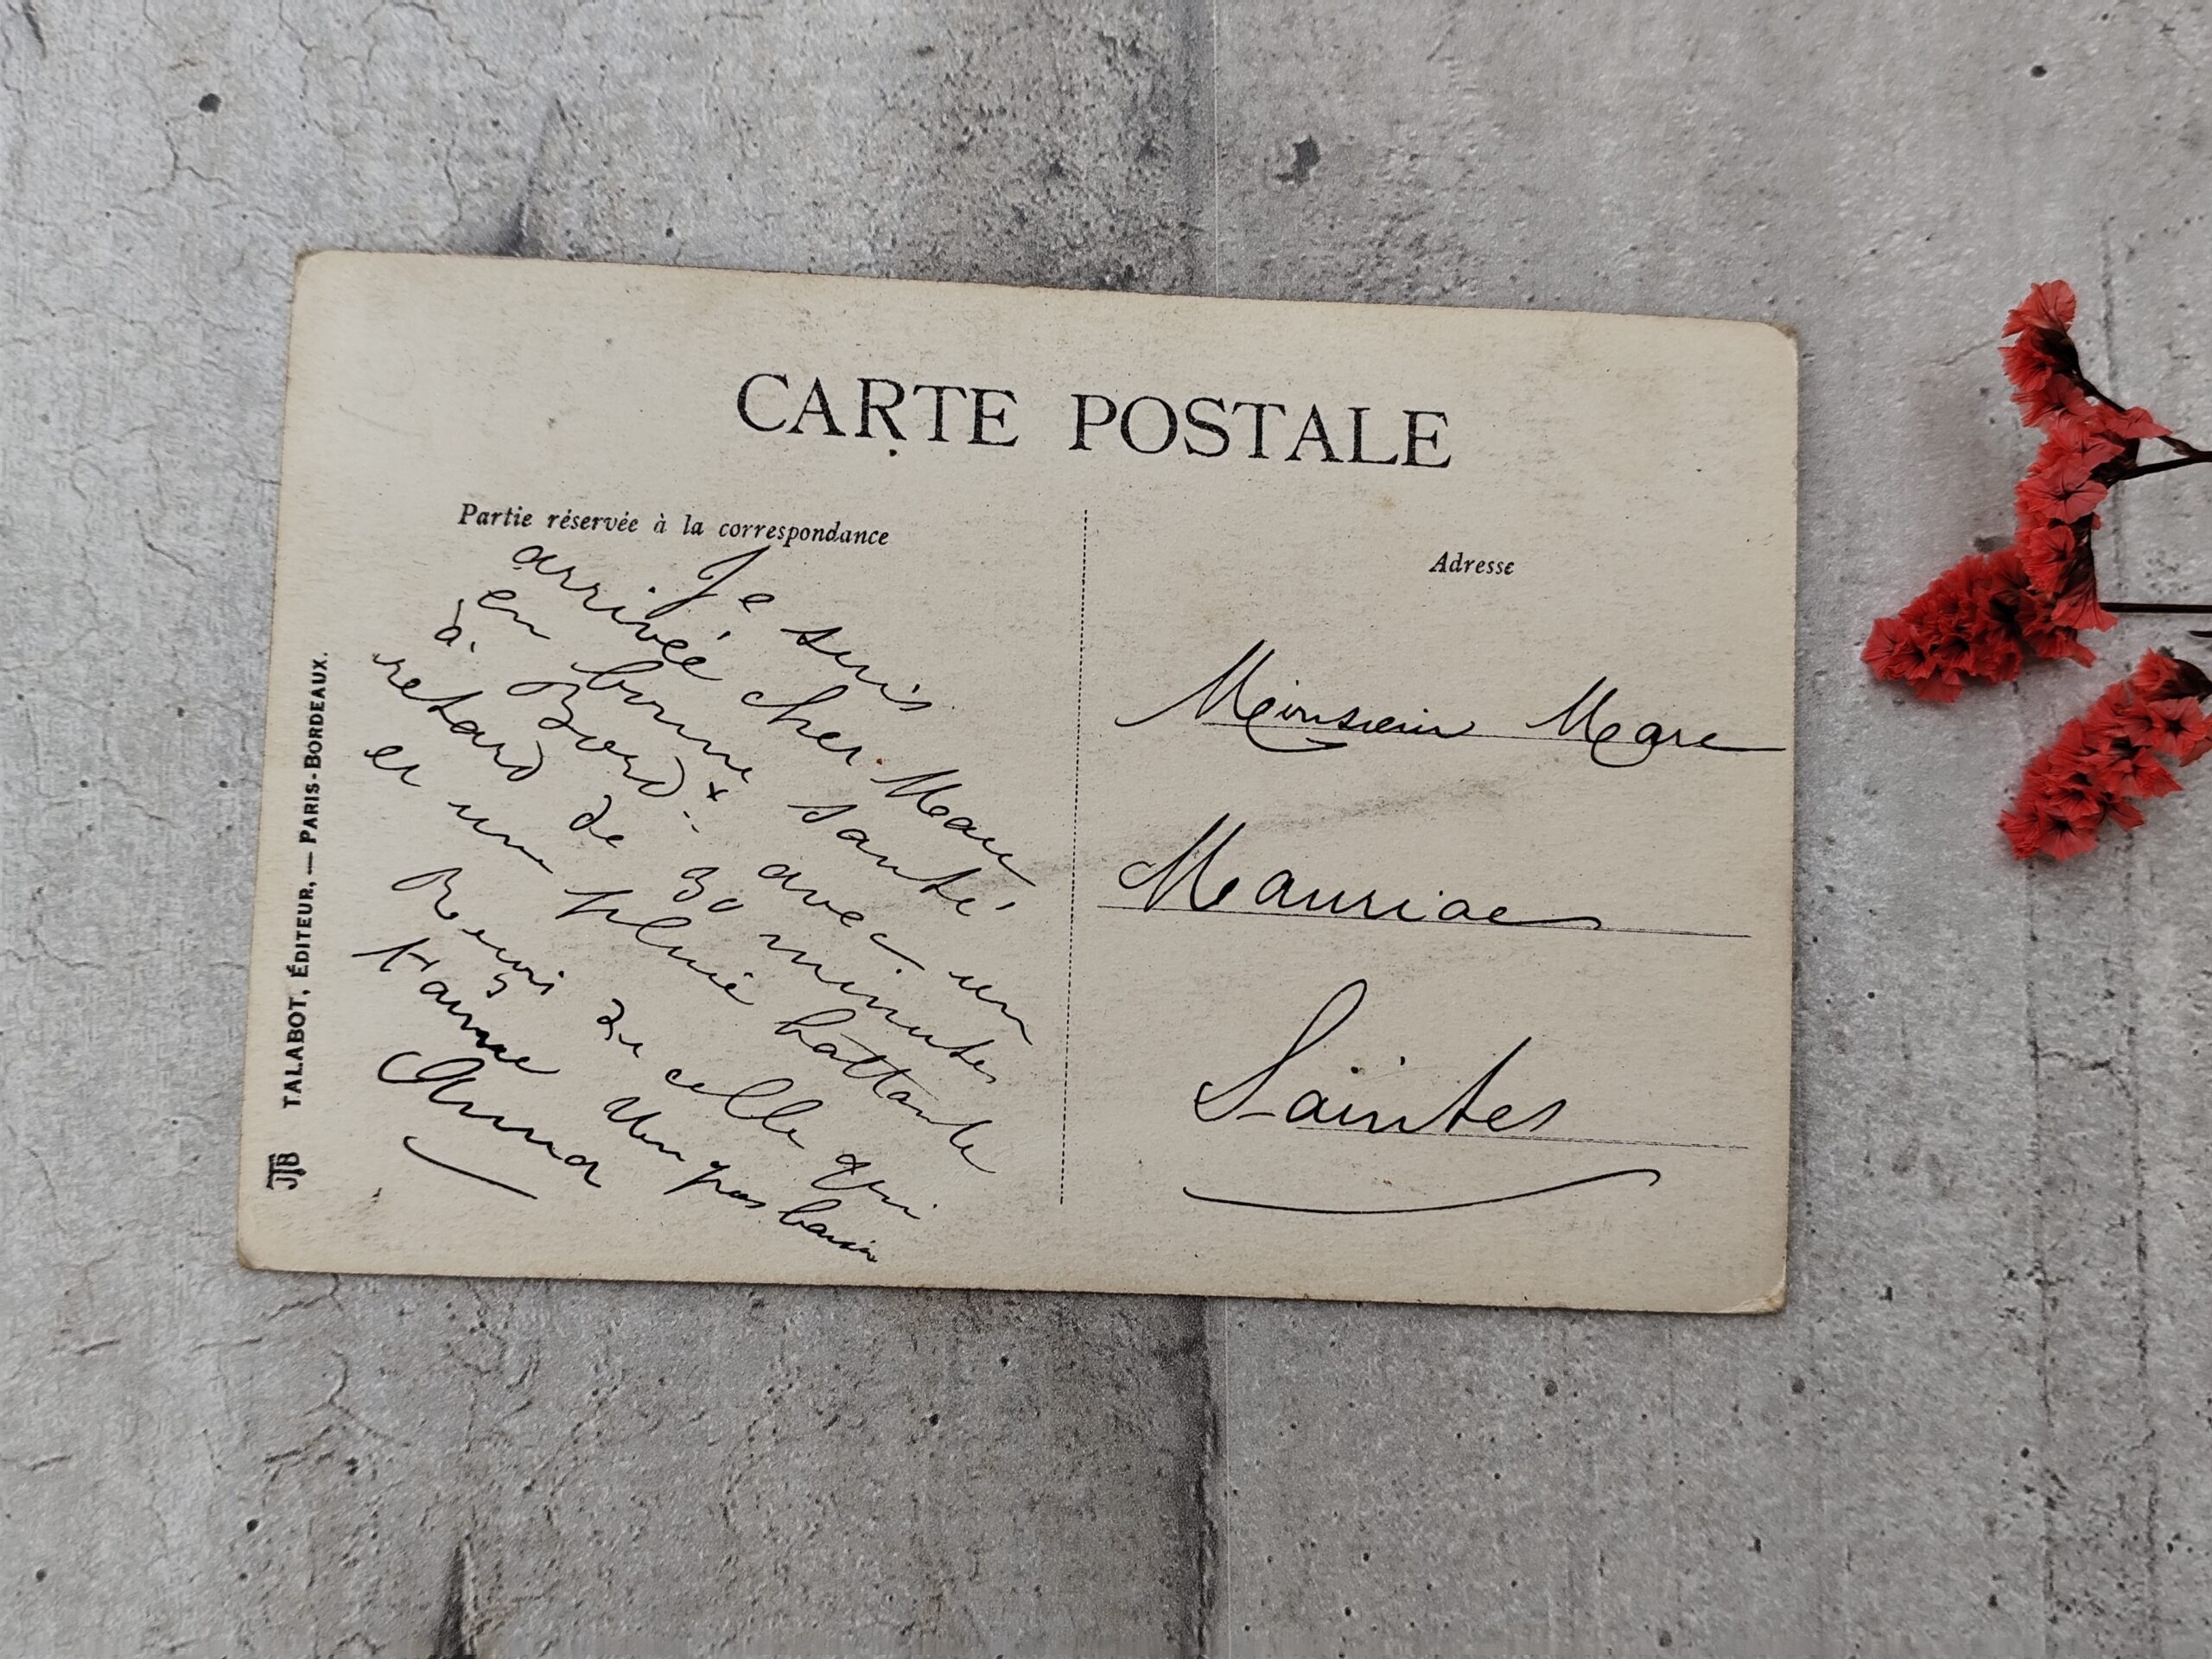 CARTE POSTALE
Partie réservée à la correspondance
Je suis
arrivée cher Marc
en bonne santé
à Bordx avec un
retard de 30 minutes
et une pluie battante
Reçois de celle qui
t'aime un gros baiser
Anna
Adresse
Monsieur Marc
Mauriac
Saintes
TALABOT, ÉDITEUR, — PARIS-BORDEAUX.
JTB